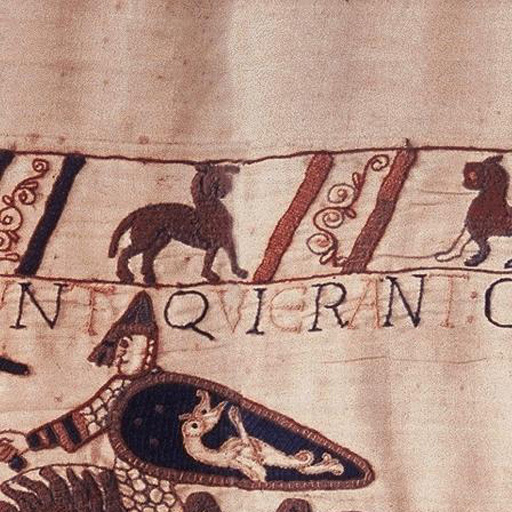 VNT QVI ERANT: C